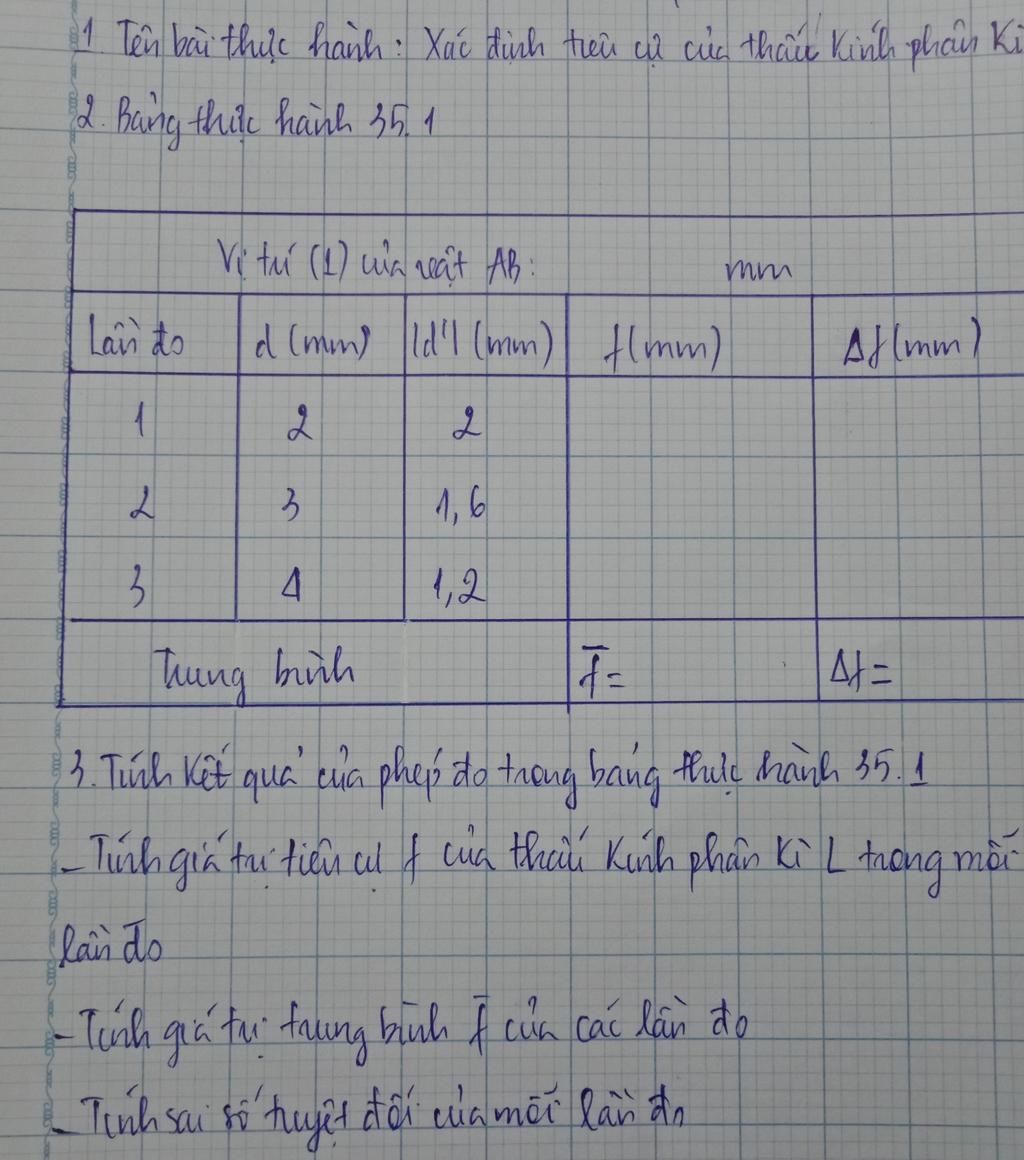 1. Tên bài thực hành: Xác định tiêu cự của thấu kính phân Kì
2. Bảng thực hành 35.1
Vị trí (1) của vật AB: mm
Lần đo d (mm) |d'| (mm) f (mm) Δf (mm)
1 2 2
2 3 1,6
3 4 1,2
Trung bình f̄ = Δf =
3. Tính kết quả của phép đo trong bảng thực hành 35.1
- Tính giá trị tiêu cự f của thấu kính phân kì L trong mỗi
lần đo
- Tính giá trị trung bình f̄ của các lần đo
- Tính sai số tuyệt đối của mỗi lần đo